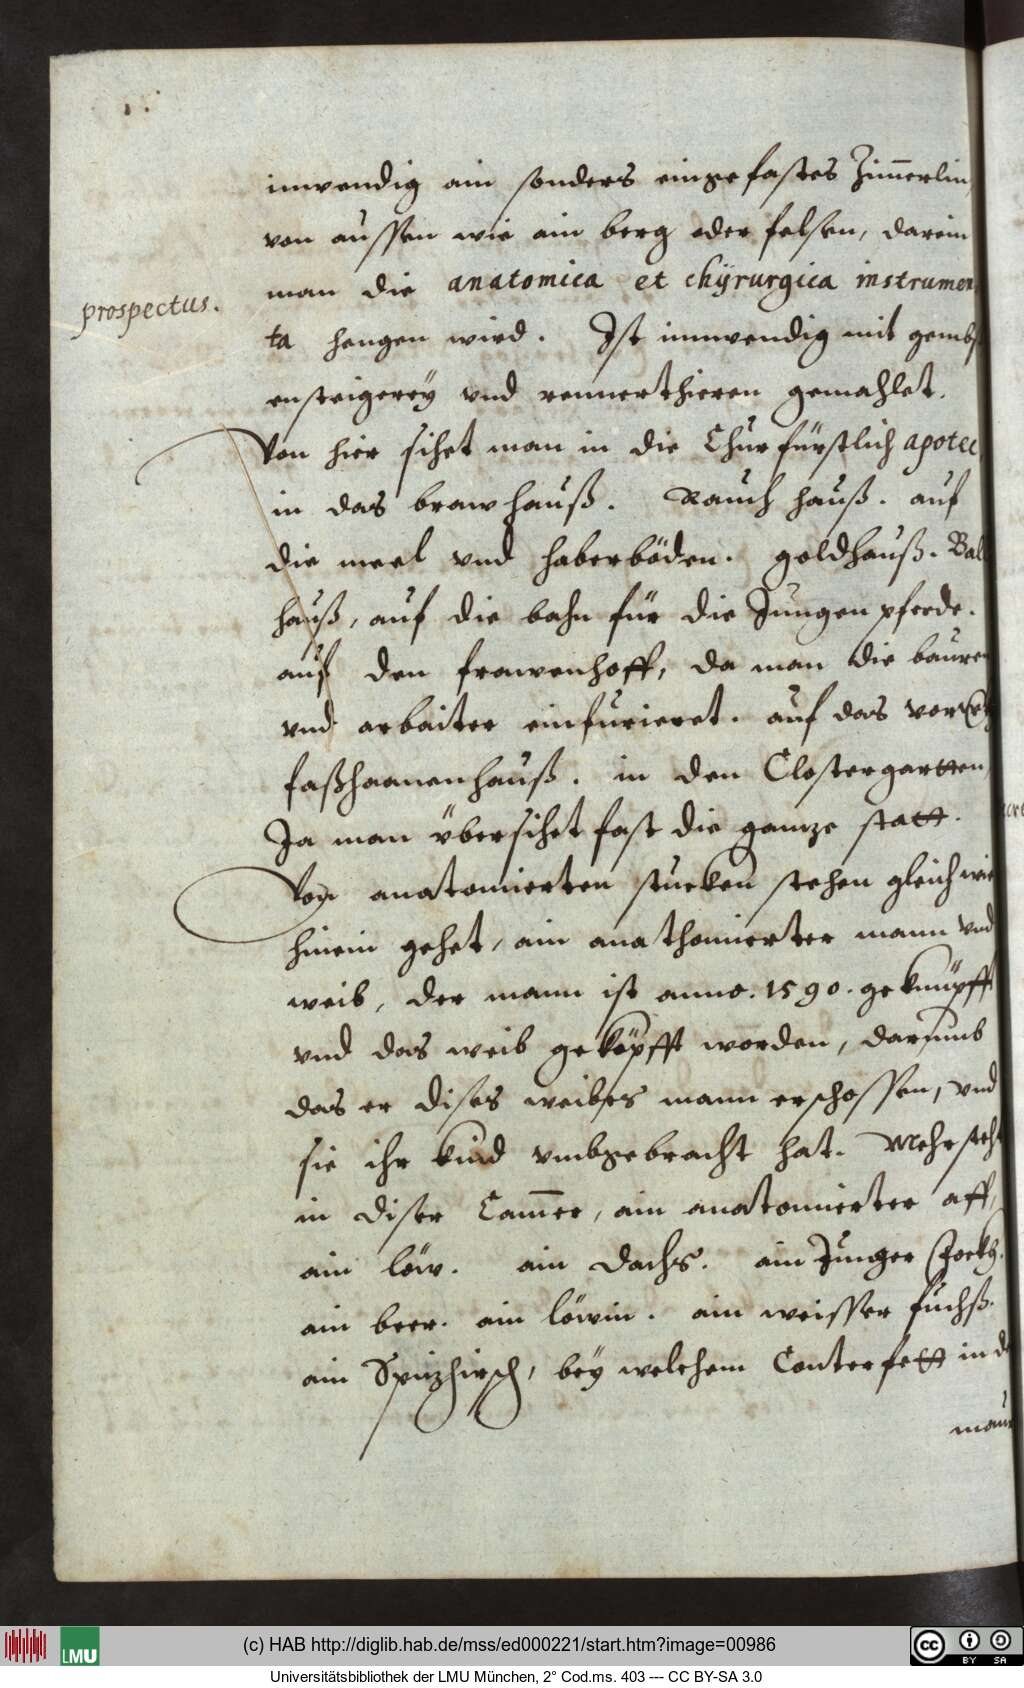 inwendig ain sonders eingefastes Zim̄erlin,
von aussen wie ain berg oder felsen, darein
man die anatomica et chÿrurgica instrumen
prospectus.
ta hengen wird. Ist innwendig mit gembs
ensteigereÿ vnd rennerthieren gemahlet.
Von hier sihet man in die Churfürstlich apotec
in das brawhauß. Rauch hauß. auf
die meel vnd haberböden. goldhauß. Bal
hauß, auf die bahn für die Jungen pferde.
auf den frawenhoff, da man die bauren
vnd arbaiter einfurieret. auf das
faßhaanenhauß. in den Clostergartten,
Ja man übersihet fast die gantze statt.
Von anatomierten stucken stehen gleich wie
hinein gehet, ain anathomierter mann vnd
weib, der mann ist anno. 1590. geknüpfft
vnd das weib geköpfft worden, darumb
das er dises weibes mann erschossen, vnd
sie ihr kind vmbgebracht hat. Mehr steht
in diser Cam̄er, ain anatomierter aff,
ain löw. ain dachs. ain Junger
ain beer. ain löwin. ain weisser fuchß.
ain Spitzhirsch, beÿ welchem Conterfett in d
maur
(c) HAB http://diglib.hab.de/mss/ed000221/start.htm?image=00986
LMU
cc BY SA
Universitätsbibliothek der LMU München, 2° Cod.ms. 403 --- CC BY-SA 3.0